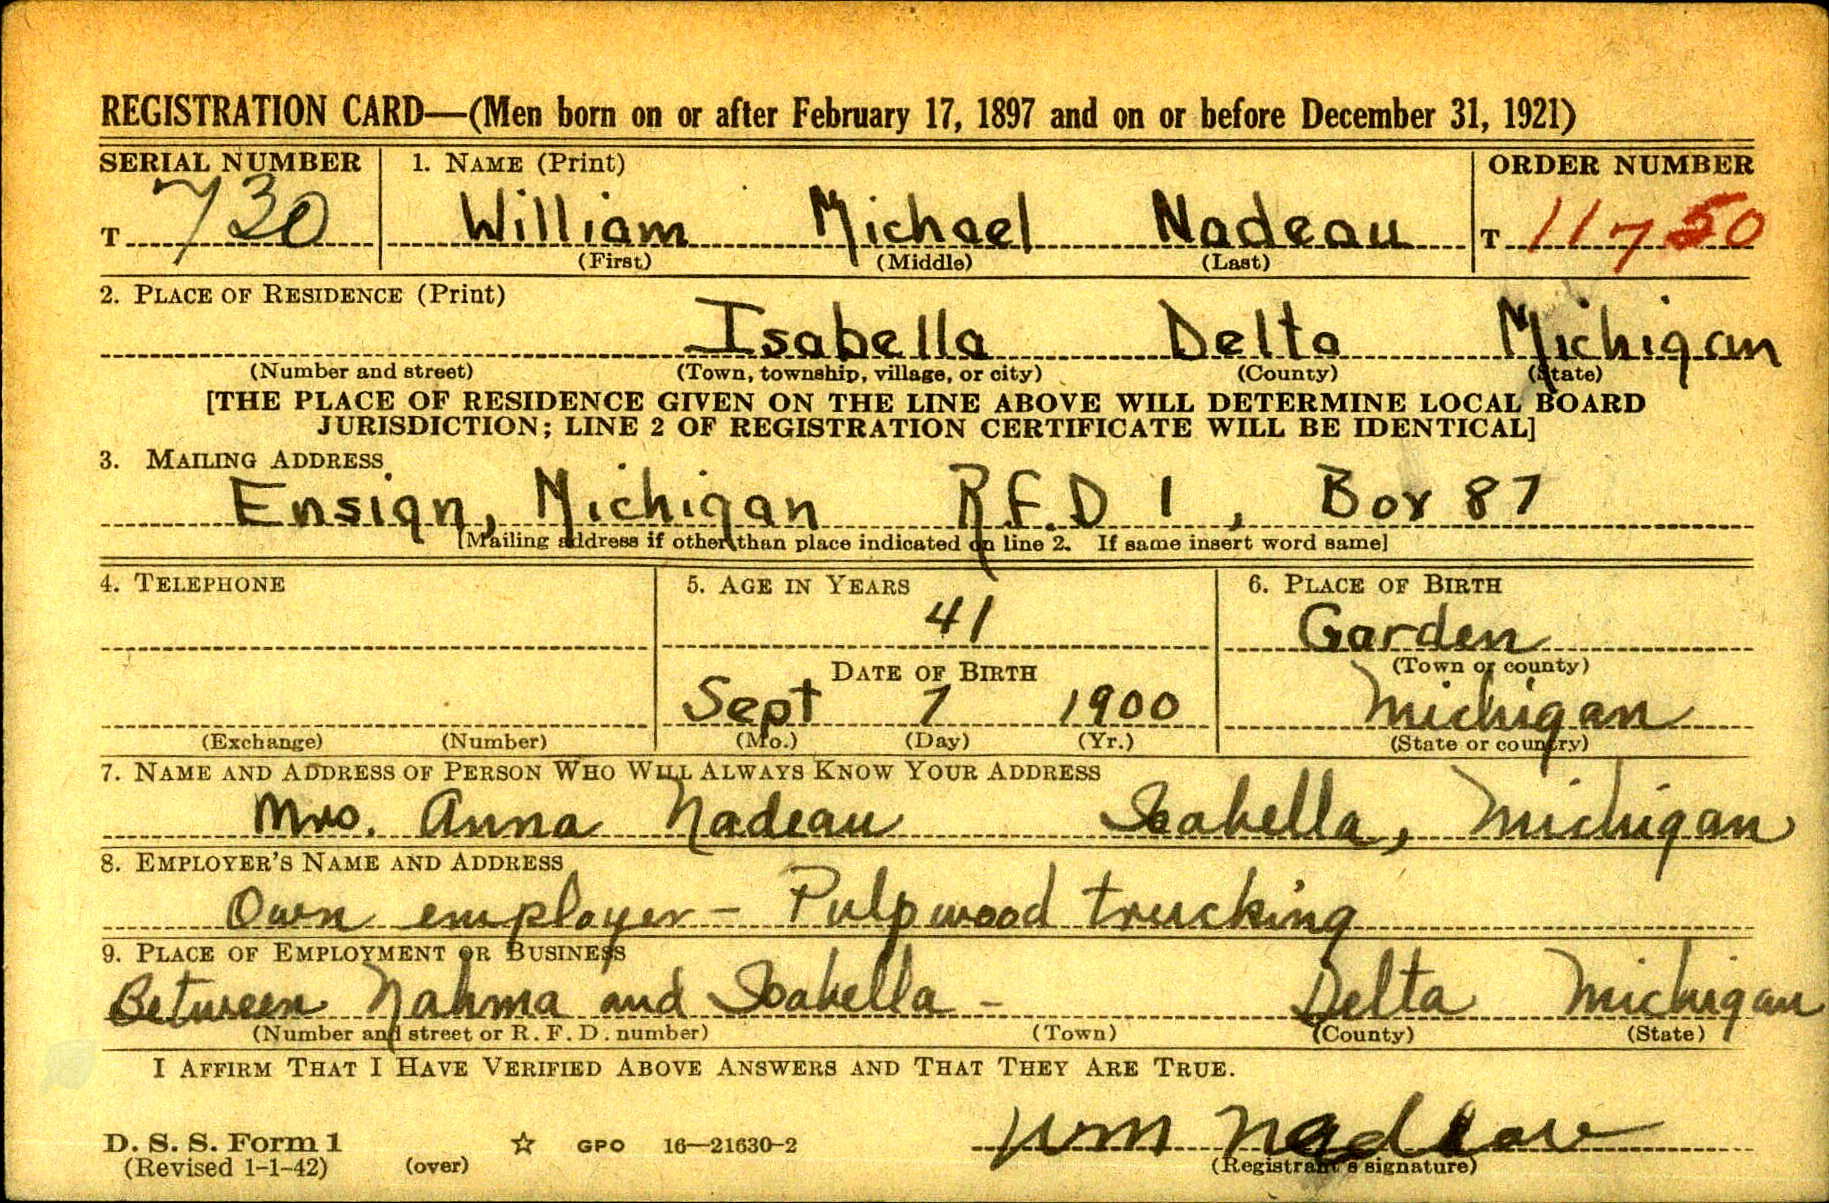 REGISTRATION CARD—(Men born on or after February 17, 1897 and on or before December 31, 1921)
SERIAL NUMBER 1. NAME (Print) ORDER NUMBER
T 730 William Michael Nadeau T 11750
(First) (Middle) (Last)
2. PLACE OF RESIDENCE (Print)
Isabella Delta Michigan
(Number and street) (Town, township, village, or city) (County) (State)
[THE PLACE OF RESIDENCE GIVEN ON THE LINE ABOVE WILL DETERMINE LOCAL BOARD
JURISDICTION; LINE 2 OF REGISTRATION CERTIFICATE WILL BE IDENTICAL]
3. MAILING ADDRESS
Ensign, Michigan R.F.D 1, Box 87
[Mailing address if other than place indicated on line 2. If same insert word same]
4. TELEPHONE 5. AGE IN YEARS 6. PLACE OF BIRTH
41 Garden
(Town or county)
DATE OF BIRTH
Sept 7 1900 Michigan
(Exchange) (Number) (Mo.) (Day) (Yr.) (State or country)
7. NAME AND ADDRESS OF PERSON WHO WILL ALWAYS KNOW YOUR ADDRESS
Mrs. Anna Nadeau Isabella, Michigan
8. EMPLOYER'S NAME AND ADDRESS
Own employer - Pulpwood trucking
9. PLACE OF EMPLOYMENT OR BUSINESS
Between Nahma and Isabella - Delta Michigan
(Number and street or R. F. D. number) (Town) (County) (State)
I AFFIRM THAT I HAVE VERIFIED ABOVE ANSWERS AND THAT THEY ARE TRUE.
Wm Nadeau
D. S. S. Form 1 ☆ GPO 16—21630-2
(Revised 1-1-42) (over) (Registrant's signature)